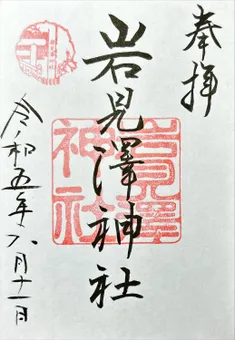 奉拝
岩見澤神社
岩見澤神社
令和五年六月十一日